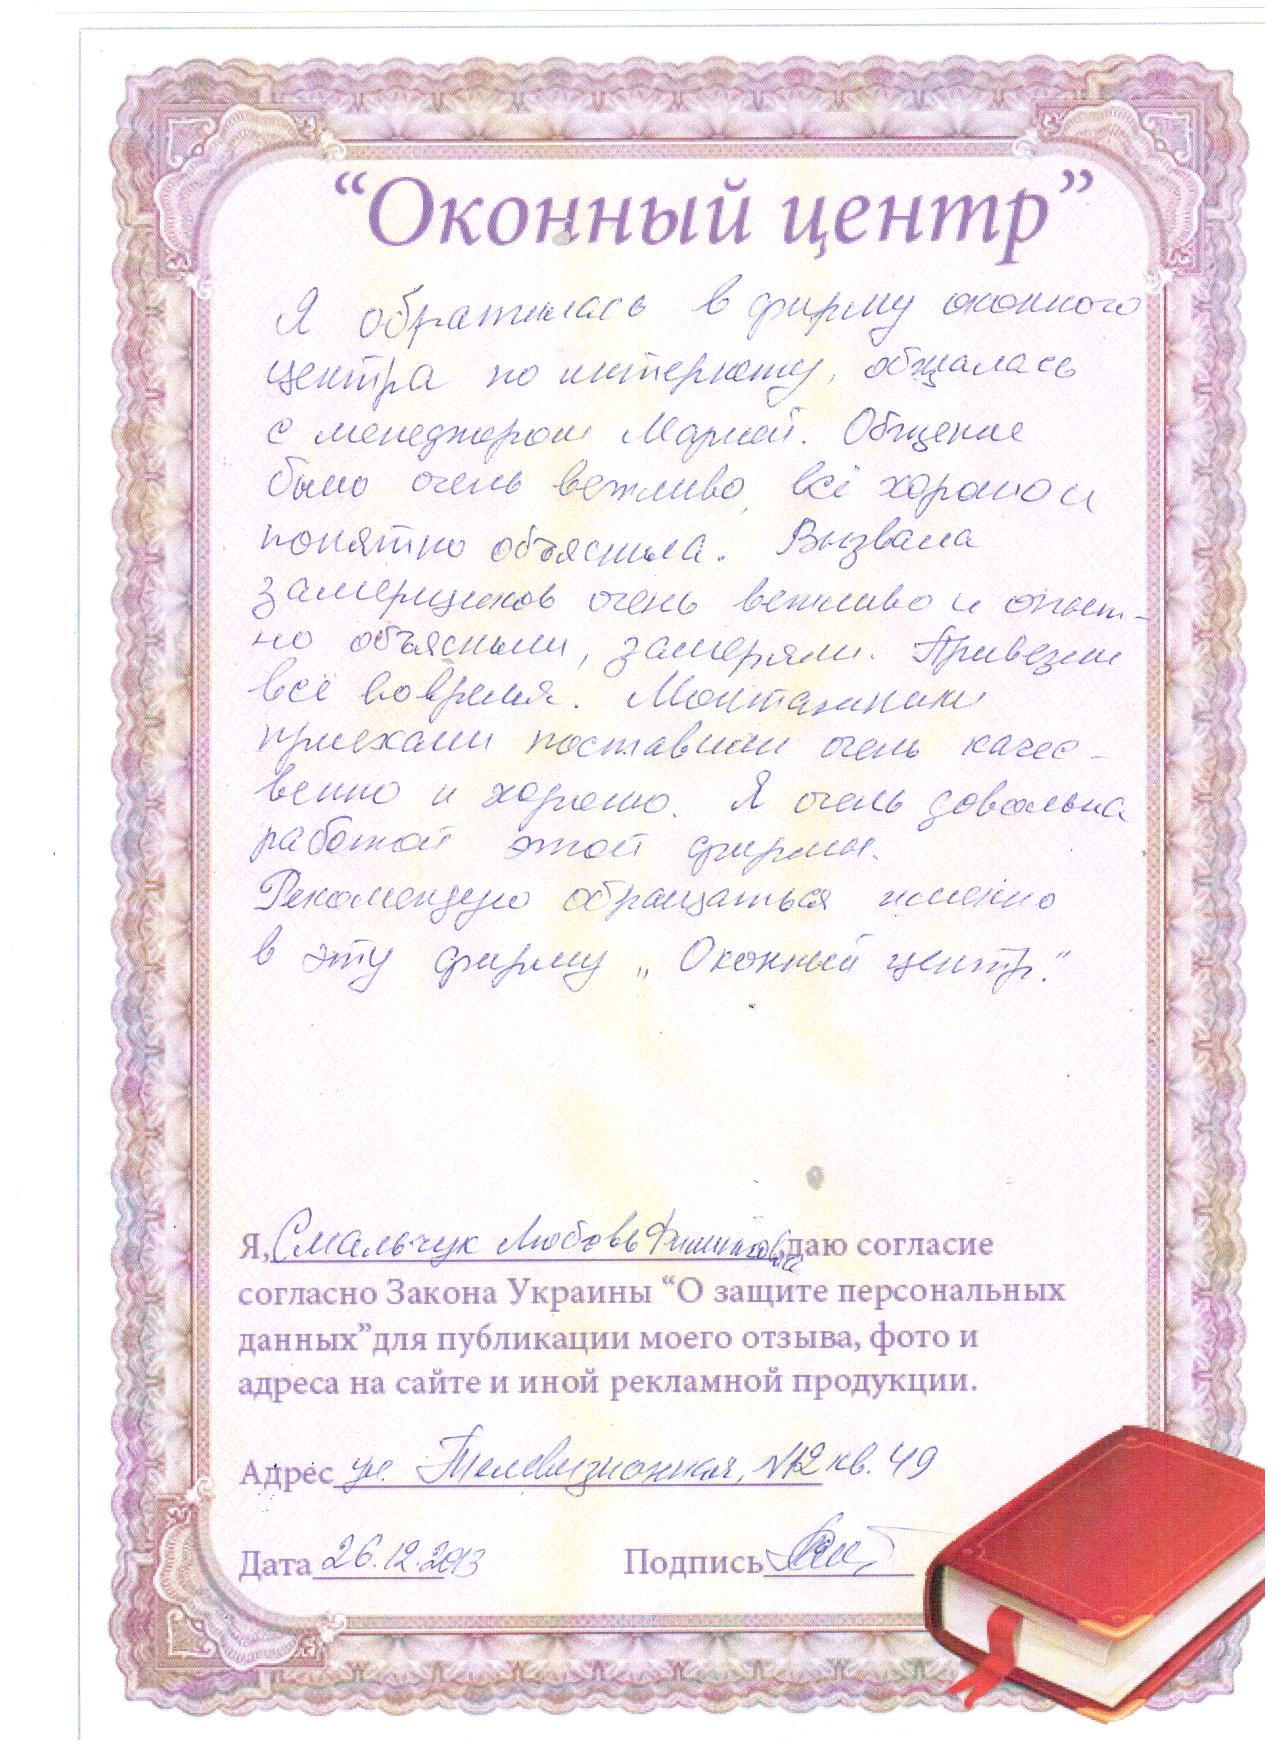 “Оконный центр”
Я обратилась в фирму оконного
центра по интернету, общалась
с менеджером Марией. Общение
было очень вежливо, всё хорошо и
понятно объяснила. Вызвала
замерщиков очень вежливо и опыт-
но объяснили, замеряли. Привезли
всё вовремя. Монтажники
приехали поставили очень качес-
венно и хорошо. Я очень довольна
работой этой фирмы.
Рекомендую обращаться именно
в эту фирму „Оконный центр."
Я, Смальчук Любовь даю согласие
согласно Закона Украины “О защите персональных
данных”для публикации моего отзыва, фото и
адреса на сайте и иной рекламной продукции.
Адрес ул. Телевизионная, кв. 49
Дата 26.12.2013 Подпись